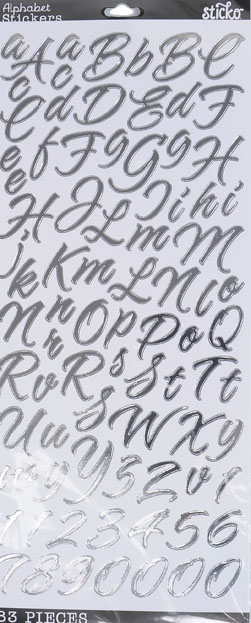 Alphabet
Stickers
sticko
a A a B b B C
c c
C d D E d F
e f F g G g H
e
H J L I i h i
i k K m m M
k L N l o
N n O p P o Q
n
R v R s S t T t
U u S W X y
u y Y 5 Z v 1
1 1 2 3 4 5 6
7 8 9 0 0 0 0
83 PIECES